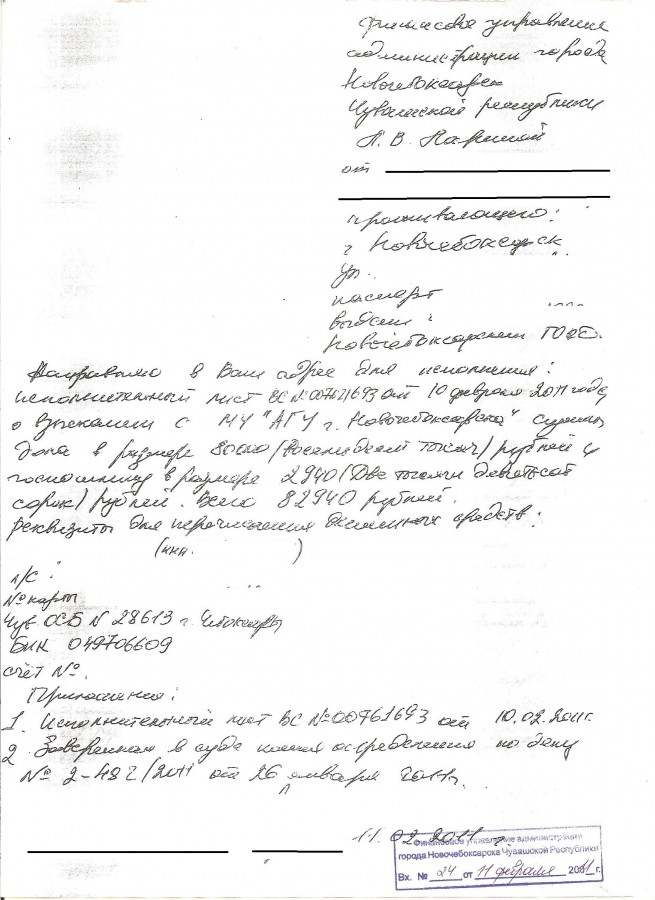 Финансовое управление
администрации города
Новочебоксарск
Чувашской республики
Л. В.
от
проживающего:
г Новочебоксарск
ул..
паспорт
выдан:
Новочебоксарским ГОВД.
Направляю в Ваш адрес для исполнения:
исполнительный лист ВС № 007621693 от 10 февраля 2011 года,
о взыскании с МУ "АГУ г. Новочебоксарска" суммы
долга в размере 80000 (восемьдесят тысяч) рублей и
госпошлину в размере 2940 (Две тысячи девятьсот
сорок) рублей. Всего 82940 рублей.
Реквизиты для перечисления денежных средств:
(инн. )
л/с:
№ карты
Чув ОСБ N 28613 г. Чебоксары
БИК 049706609
счёт №.
Приложение:
1. Исполнительный лист ВС № 00761693 от 10.02.2011г.
2 Заверенная в суде копия определения по делу
№ 2-482/2011 от 26 января 2011г.
11.02.2011
Финансовое управление администрации
города Новочебоксарска Чувашской Республики
Вх. № 24 от 11 февраля 2011 г.